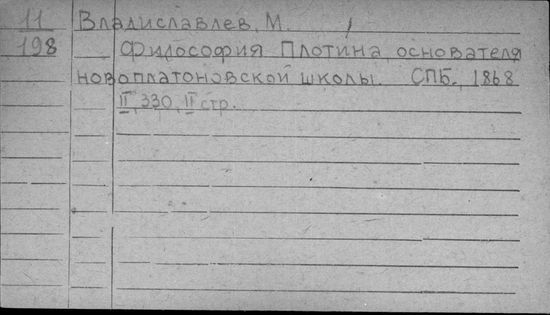 11 Владиславлев, М.
198 Философия Плотина, основателя
новоплатоновской школы. СПБ., 1868
II, 330, II стр.